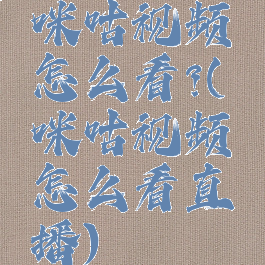 咪咕视频
怎么看?(
咪咕视频
怎么看直
播)